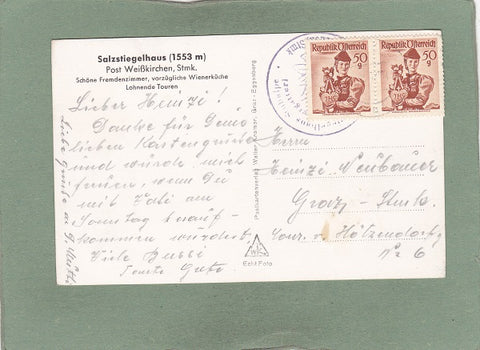 Salzstiegelhaus (1553 m)
Post Weißkirchen, Stmk.
Schöne Fremdenzimmer, vorzügliche Wienerküche
Lohnende Touren
Lieber Heinzi!
Danke für Deine
lieben Kartengrüße
und würde mich
freuen, wenn Du
mit Vati am
Sonntag herauf-
kommen würdest.
Viele Bussi
Tante
Liebe Grüße an
Postkartenverlag Walter Kramer, Graz-Eggenberg
Echt Foto
Republik Österreich
50
g
Republik Österreich
50
g
Herrn
Heinzi Neubauer
Graz - Stmk.
Conr. v. Hötzendorfstr.
Nr 6